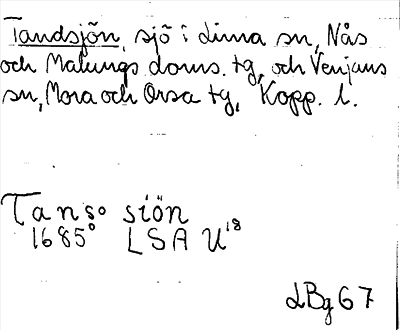 Tandsjön, sjö i Lima sn, Nås
och Malungs doms. tg, och Venjans
sn, Mora och Orsa tg, Kopp. l.
Tanso siön
1685° LSA U18
LBg 67